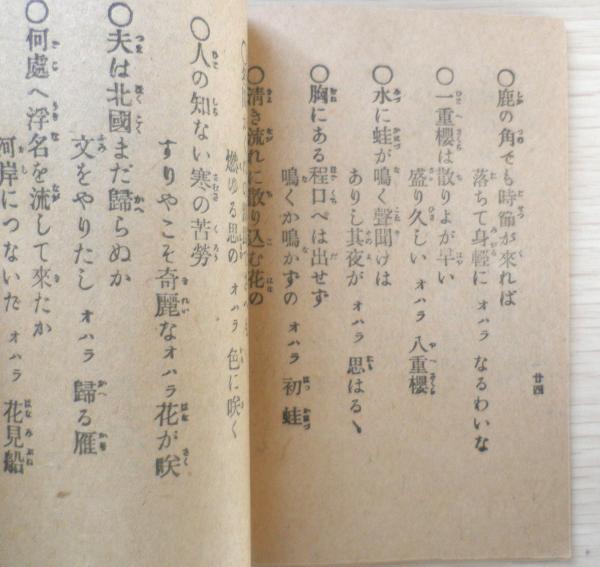 廿四
○鹿の角でも時節が來れば
落ちて身輕に オハラ なるわいな
○一重櫻は散りよが早い
盛り久しい オハラ 八重櫻
○水に蛙が鳴く聲聞けは
ありし其夜が オハラ 思はるゝ
○胸にある程口へは出せず
鳴くか鳴かずの オハラ 初蛙
○清き流れに散り込む花の
燃ゆる思の オハラ 色に咲く
○人の知ない寒の苦勞
すりやこそ奇麗な オハラ 花が咲
○夫は北國まだ歸らぬか
文をやりたし オハラ 歸る雁
○何處へ浮名を流して來たか
河岸につないだ オハラ 花見船